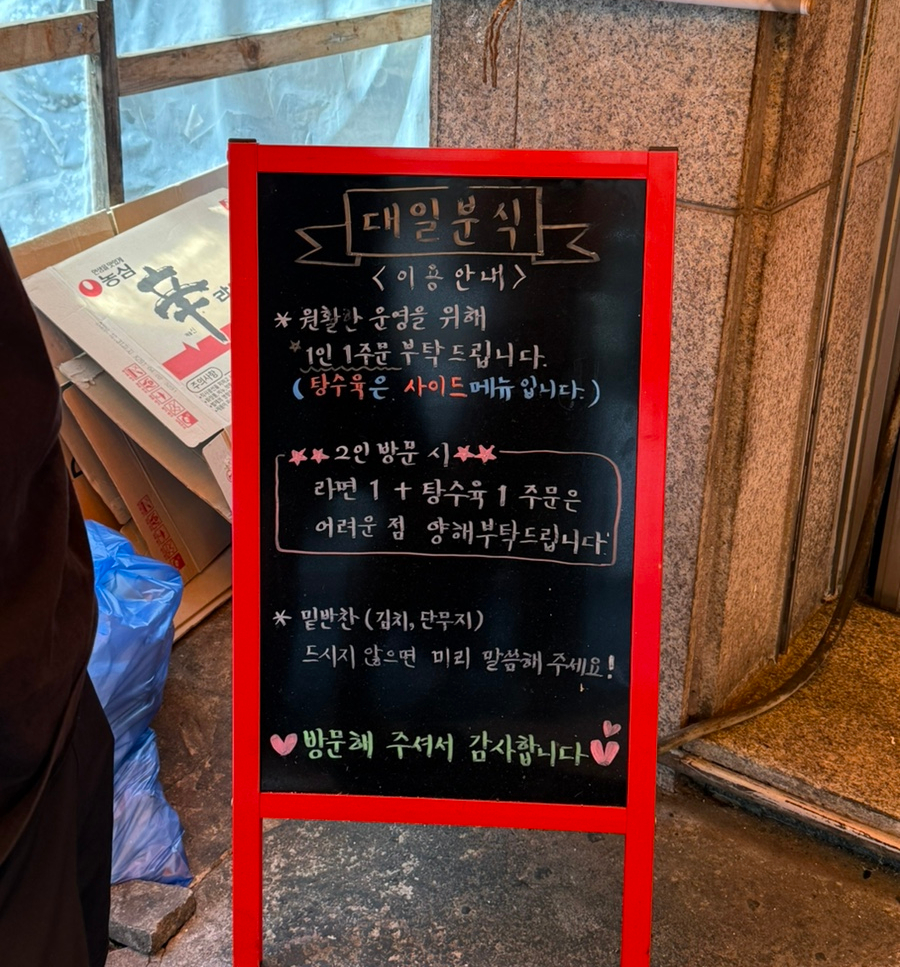 대일분식
<이용안내>
* 원활한 운영을 위해
*1인 1주문 부탁드립니다.
(탕수육은 사이드메뉴입니다.)
★★ 2인 방문 시 ★★
라면 1 + 탕수육 1 주문은
어려운 점 양해부탁드립니다
* 밑반찬 (김치, 단무지)
드시지 않으면 미리 말씀해 주세요!
♥방문해 주셔서 감사합니다♥
농심
辛
라
주의사항